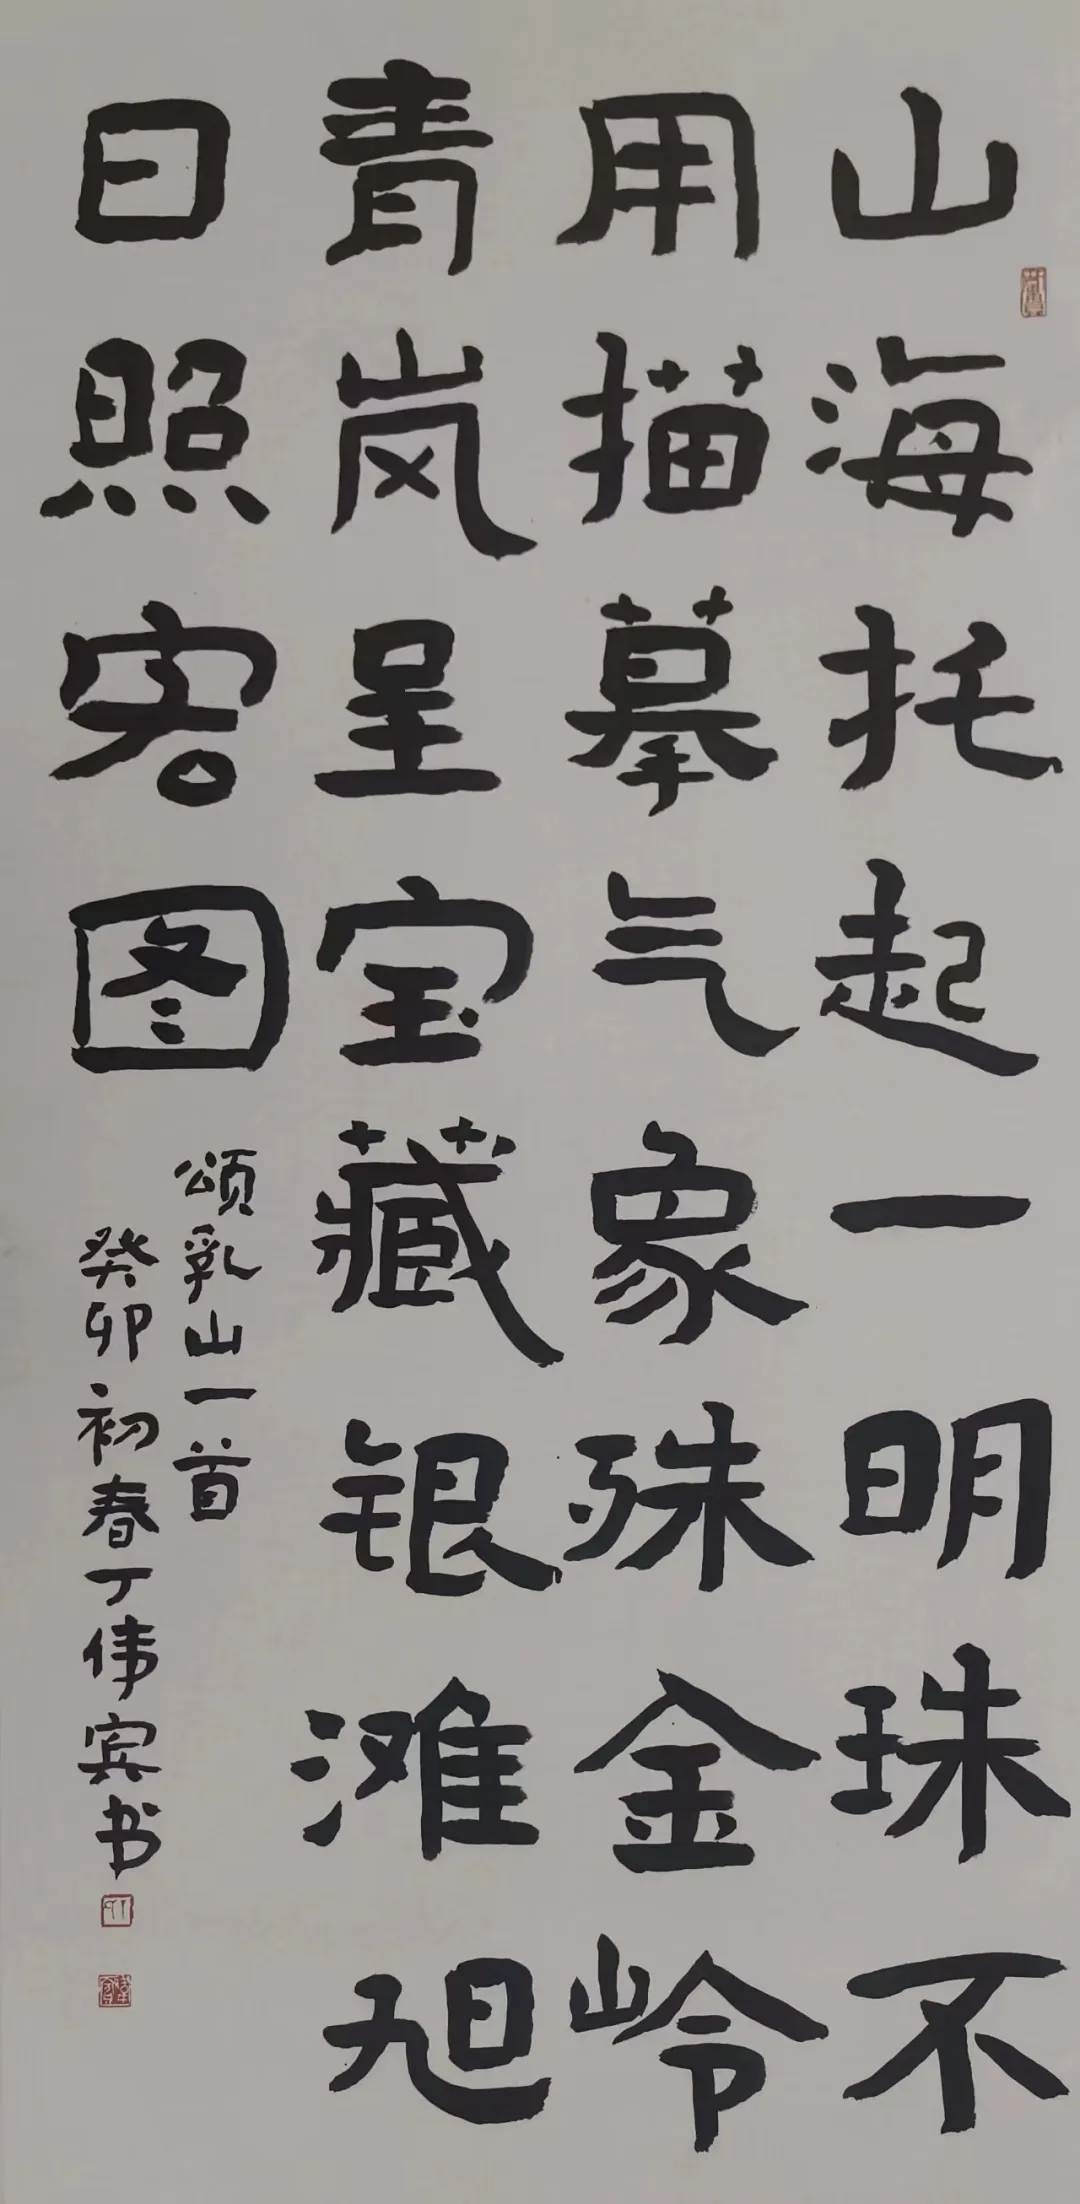 山海托起一明珠不
用描摹气象殊金岭
青岚呈宝藏银滩旭
日照客图
颂乳山一首
癸卯初春丁伟宾书